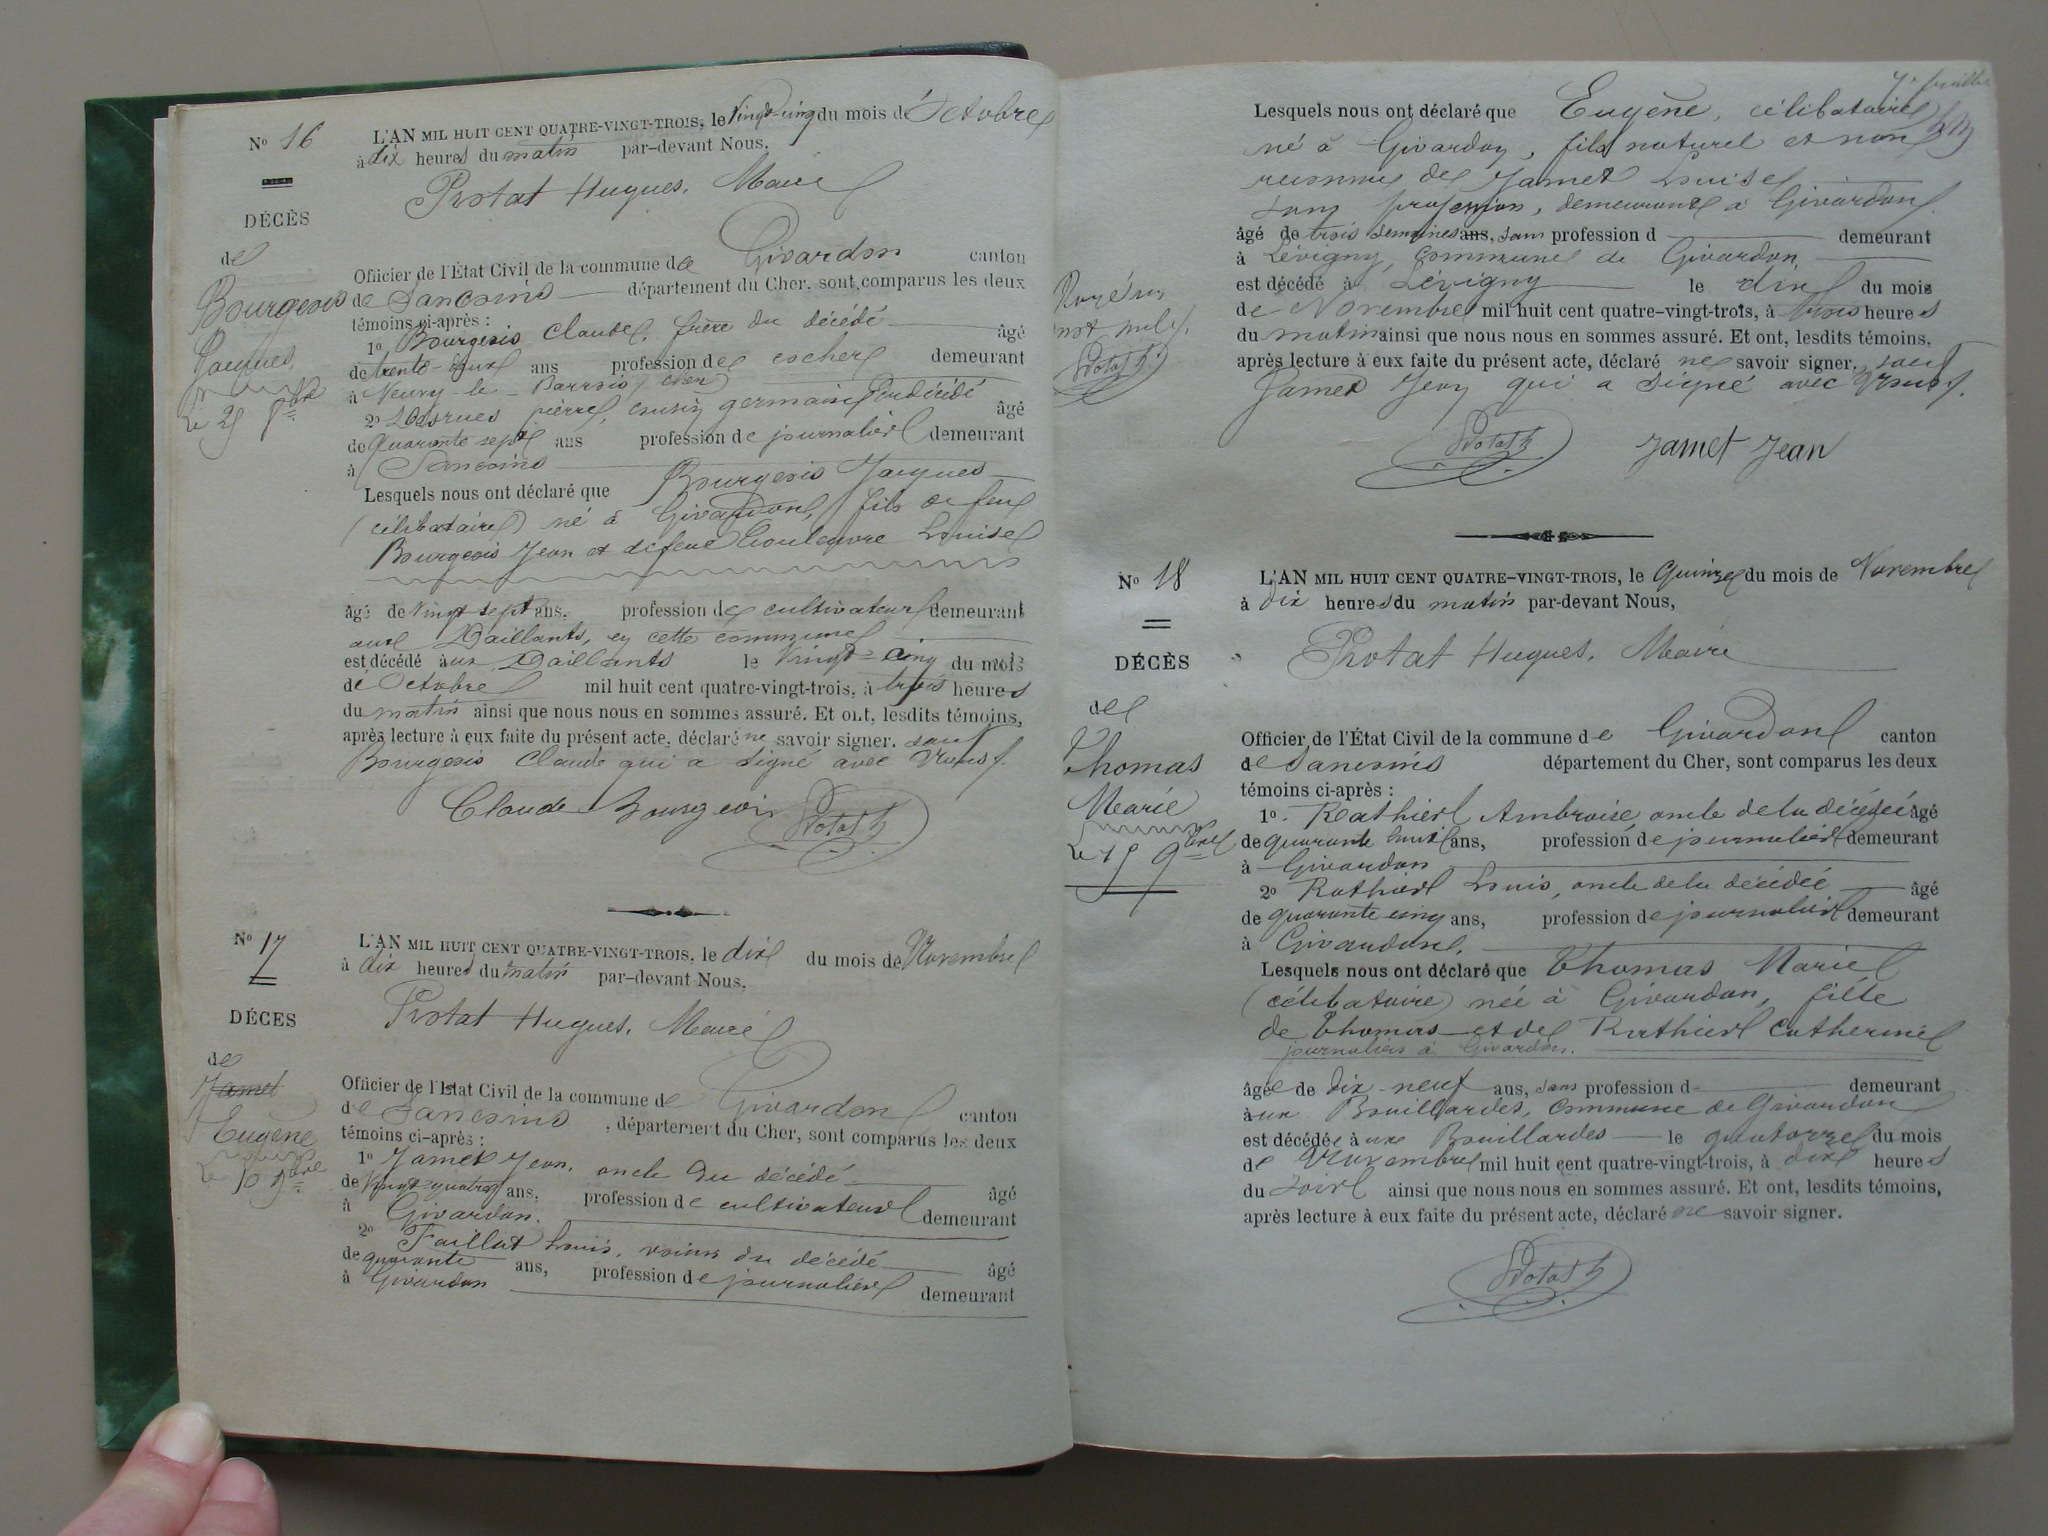 No 16
L'AN MIL HUIT CENT QUATRE-VINGT-TROIS, le vingt-cinq du mois de Octobre
à dix heures du matin par-devant Nous,
Protat Hugues, Maire
DÉCÈS
de
Bourgeois
Jacques,
Le 25 8bre
Officier de l'État Civil de la commune de Givardon canton
de Sancoins département du Cher, sont comparus les deux
témoins ci-après :
1º Bourgeois Claude, frère du décédé âgé
de trente-deux ans profession de demeurant
à Neuvy-le-Barrois (Cher)
2º pierre, cousin germain du décédé âgé
de quarante sept ans profession de journalier demeurant
à Sancoins
Lesquels nous ont déclaré que Bourgeois Jacques
(célibataire) né à Givardon, fils de feu
Bourgeois Jean et de feue Couleuvre Louise
âgé de vingt-sept ans, profession de cultivateur demeurant
aux Daillants, en cette commune
est décédé aux Daillants le vingt-cinq du mois
de Octobre mil huit cent quatre-vingt-trois, à trois heures
du matin ainsi que nous nous en sommes assuré. Et ont, lesdits témoins,
après lecture à eux faite du présent acte, déclaré ne savoir signer. sauf
Bourgeois Claude qui a signé avec Nous.
Claude Bourgeois Protat h
No 17
L'AN MIL HUIT CENT QUATRE-VINGT-TROIS, le dix du mois de Novembre
à dix heures du matin par-devant Nous,
Protat Hugues, Maire
DÉCES
de
Jamet
Eugène
Le 10 9bre
Officier de l'Etat Civil de la commune de Givardon canton
de Sancoins, département du Cher, sont comparus les deux
témoins ci-après :
1º Jamet Jean, oncle du décédé âgé
de vingt-quatre ans, profession de cultivateur demeurant
à Givardon.
2º Faillat Louis, voisin du décédé âgé
de quarante ans, profession de journalier demeurant
à Givardon
Lesquels nous ont déclaré que Eugène, célibataire
né à Givardon, fils naturel et non
reconnu de Jamet Louise
sans profession, demeurant à Givardon.
âgé de trois semaines ans, sans profession d demeurant
à Lévigny, commune de Givardon
est décédé à Lévigny le dix du mois
de Novembre mil huit cent quatre-vingt-trois, à trois heures
du matin ainsi que nous nous en sommes assuré. Et ont, lesdits témoins,
après lecture à eux faite du présent acte, déclaré ne savoir signer. sauf
Jamet Jean qui a signé avec Nous.
Rayé un
mot nul.
Protat h.
Protat h Jamet Jean
No 18
L'AN MIL HUIT CENT QUATRE-VINGT-TROIS, le quinze du mois de Novembre
à dix heures du matin par-devant Nous,
Protat Hugues, Maire
DÉCÈS
de
Thomas
Marie
Le 15 9bre
Officier de l'État Civil de la commune de Givardon canton
de Sancoins département du Cher, sont comparus les deux
témoins ci-après :
1º. Rathier Ambroise, oncle de la décédée âgé
de quarante huit ans, profession de journalier demeurant
à Givardon
2º Rathier Louis, oncle de la décédée âgé
de quarante cinq ans, profession de journalier demeurant
à Givardon.
Lesquels nous ont déclaré que Thomas Marie
(célibataire) née à Givardon, fille
de Thomas et de Rathier Catherine
journaliers à Givardon.
âgée de dix-neuf ans, sans profession d demeurant
aux Bouillardes, commune de Givardon
est décédée aux Bouillardes le quatorze du mois
de Novembre mil huit cent quatre-vingt-trois, à dix heures
du soir ainsi que nous nous en sommes assuré. Et ont, lesdits témoins,
après lecture à eux faite du présent acte, déclaré ne savoir signer.
Protat h